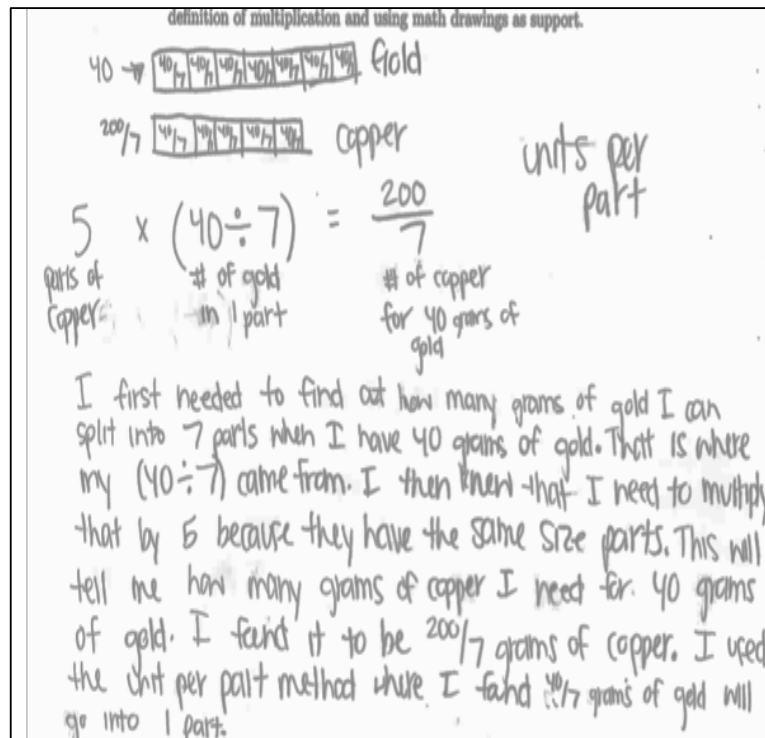 definition of multiplication and using math drawings as support.
40 → 40/7 40/7 40/7 40/7 40/7 40/7 40/7 Gold
200/7 40/7 40/7 40/7 40/7 40/7 copper
units per
part
5 × (40÷7) = 200/7
parts of # of gold # of copper
copper in 1 part for 40 grams of
gold
I first needed to find out how many grams of gold I can
split into 7 parts when I have 40 grams of gold. That is where
my (40÷7) came from. I then knew that I need to multiply
that by 5 because they have the same size parts. This will
tell me how many grams of copper I need for 40 grams
of gold. I found it to be 200/7 grams of copper. I used
the unit per part method where I found 40/7 grams of gold will
go into 1 part.